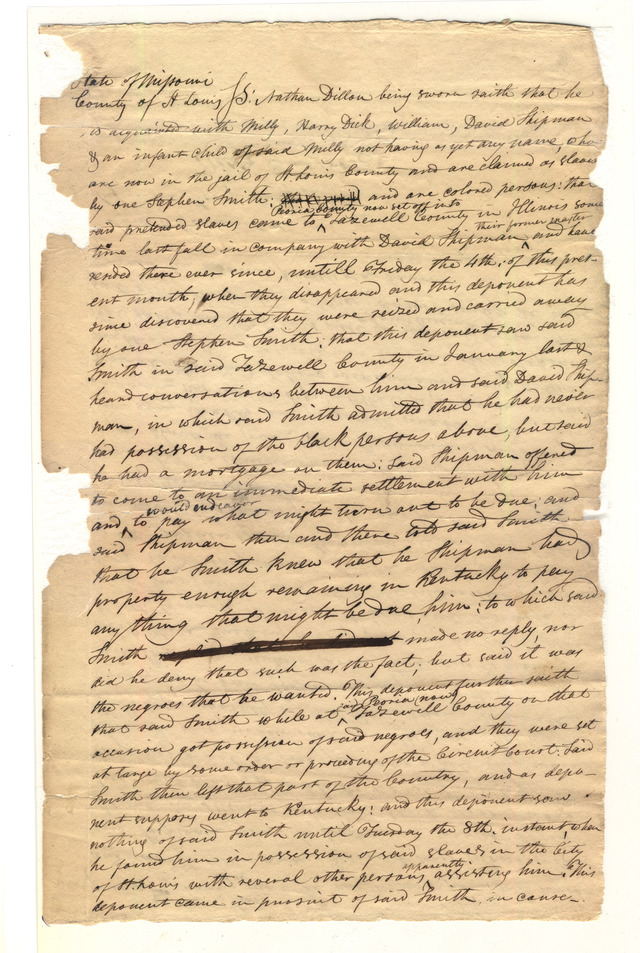 State of Missouri
County of St Louis SS. Nathan Dillon being sworn saith that he
is acquainted with Milly, Harry Dick, William, David Shipman
& an infant child of said Milly not having as yet any name, who
are now in the jail of St Louis County and are claimed as slaves
by one Stephen Smith; and are colored persons: that
Peoria County now set off into
said pretended slaves came to ^ Tazewell County in Illinois some
their former master
time last fall in company with David Shipman ^ and have
resided there ever since, untill Friday the 4th: of this pres-
ent month; when they disappeared and this deponent has
since discovered that they were seized and carried away
by one Stephen Smith: that this deponent saw said
Smith in said Tazewell County in January last &
heard conversations between him and said David Ship-
man, in which said Smith admitted that he had never
had possession of the black persons above, but said
he had a mortgage on them: said Shipman offered
to come to an immediate settlement with him
would endeavor
and ^ to pay what might turn out to be due: and
said Shipman then and there told said Smith
that he Smith knew that he Shipman had
property enough remaining in Kentucky to pay
any thing that might be due him: to which said
Smith made no reply, nor
did he deny that such was the fact, but said it was
the negroes that he wanted. This deponent further saith
Peoria (now)
that said Smith while at ^ Tazewell County on that
occasion got possession of said negroes, and they were set
at large by some order or proceeding of the Circuit Court: Said
Smith then left that part of the Country, and as depo-
nent supposes went to Kentucky: and this deponent saw
nothing of said Smith until Tuesday the 8th. instant, when
he found him in possession of said slaves in the City
apparently
of St. Louis with several other persons ^ assisting him. This
deponent came in pursuit of said Smith, in conse-